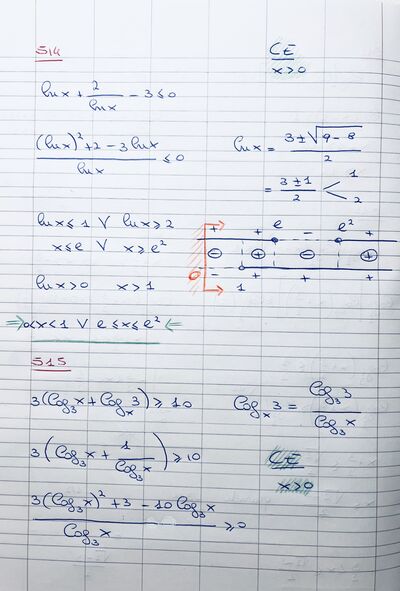 514
CE
x>0
ln x + 2/ln x - 3 ≤ 0
(ln x)² + 2 - 3 ln x / ln x ≤ 0
ln x = 3 ± √9 - 8 / 2
= 3 ± 1 / 2 < 1 2
ln x ≤ 1 V ln x ≥ 2
x ≤ e V x ≥ e²
ln x > 0 x > 1
+ + e - e² +
- + - +
0 - 1 + + +
⇒ 0<x<1 V e ≤ x ≤ e² ⇐
515
3(log₃x + logₓ3) ≥ 10
logₓ3 = log₃3 / log₃x
3(log₃x + 1/log₃x) ≥ 10
CE
x>0
3(log₃x)² + 3 - 10 log₃x / log₃x ≥ 0